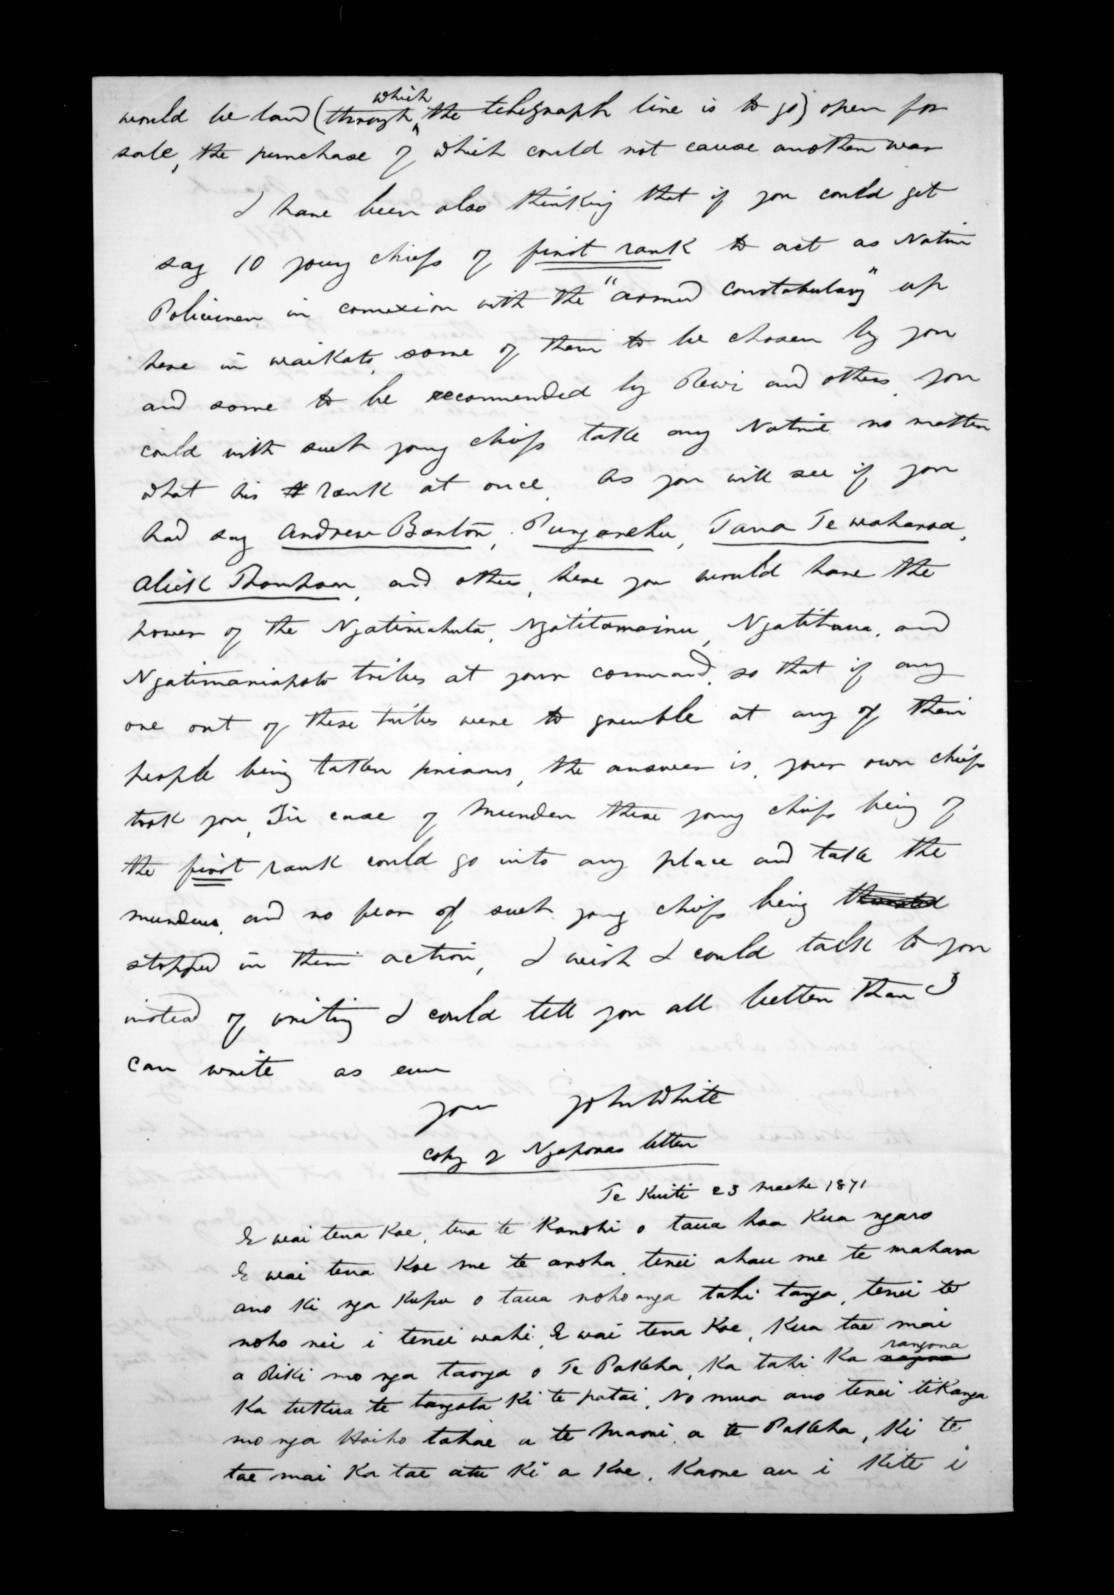 would be land (through which the telegraph line is to go) open for
sale, the purchase of which could not cause another war
I have been also thinking that if you could get
say 10 young chiefs of first rank to act as Native
Policemen in connexion with the "armed constabulary" up
here in Waikato, some of them to be chosen by you
and some to be recommended by Rewi and others, you
could with such young chiefs take any Native no matter
what his rank at once. As you will see if you
had say Andrew Barton, Pungarehu, Tana Te Waharoa,
Alick Thomson, and others, here you would have the
power of the Ngatimahuta, Ngatitamainu, Ngatihaua, and
Ngatimaniapoto tribes at your command, so that if any
one out of these tribes were to grumble at any of their
people being taken prisons, the answer is, your own chiefs
took you, In case of Murder these young chiefs being of
the first rank could go into any place and take the
murderers, and no fear of such young chiefs being thwarted
stopped in their action, I wish I could talk to you
instead of writing I could tell you all better than I
can write as ever
your John White
copy of Ngapora's letter
Te Kuiti 23 March 1871
E wai tena koe, tena te kanohi o taua hoa kua ngaro
E wai tena koe me te aroha, tenei ahau me te mahara
ano ki nga kupu o taua nohoanga tahi tanga, tenei te
noho nei i tenei wahi, E wai tena koe, kua tae mai
a Riki mo nga taonga o Te Pakeha, ka tahi ka rangona
ka tukua te tangata ki te patai. No mua ano tenei tikanga
mo nga Hoiho tahae a te Maori a te Pakeha, ki te
tae mai ka tae atu ki a koe. Kaore au i kite i